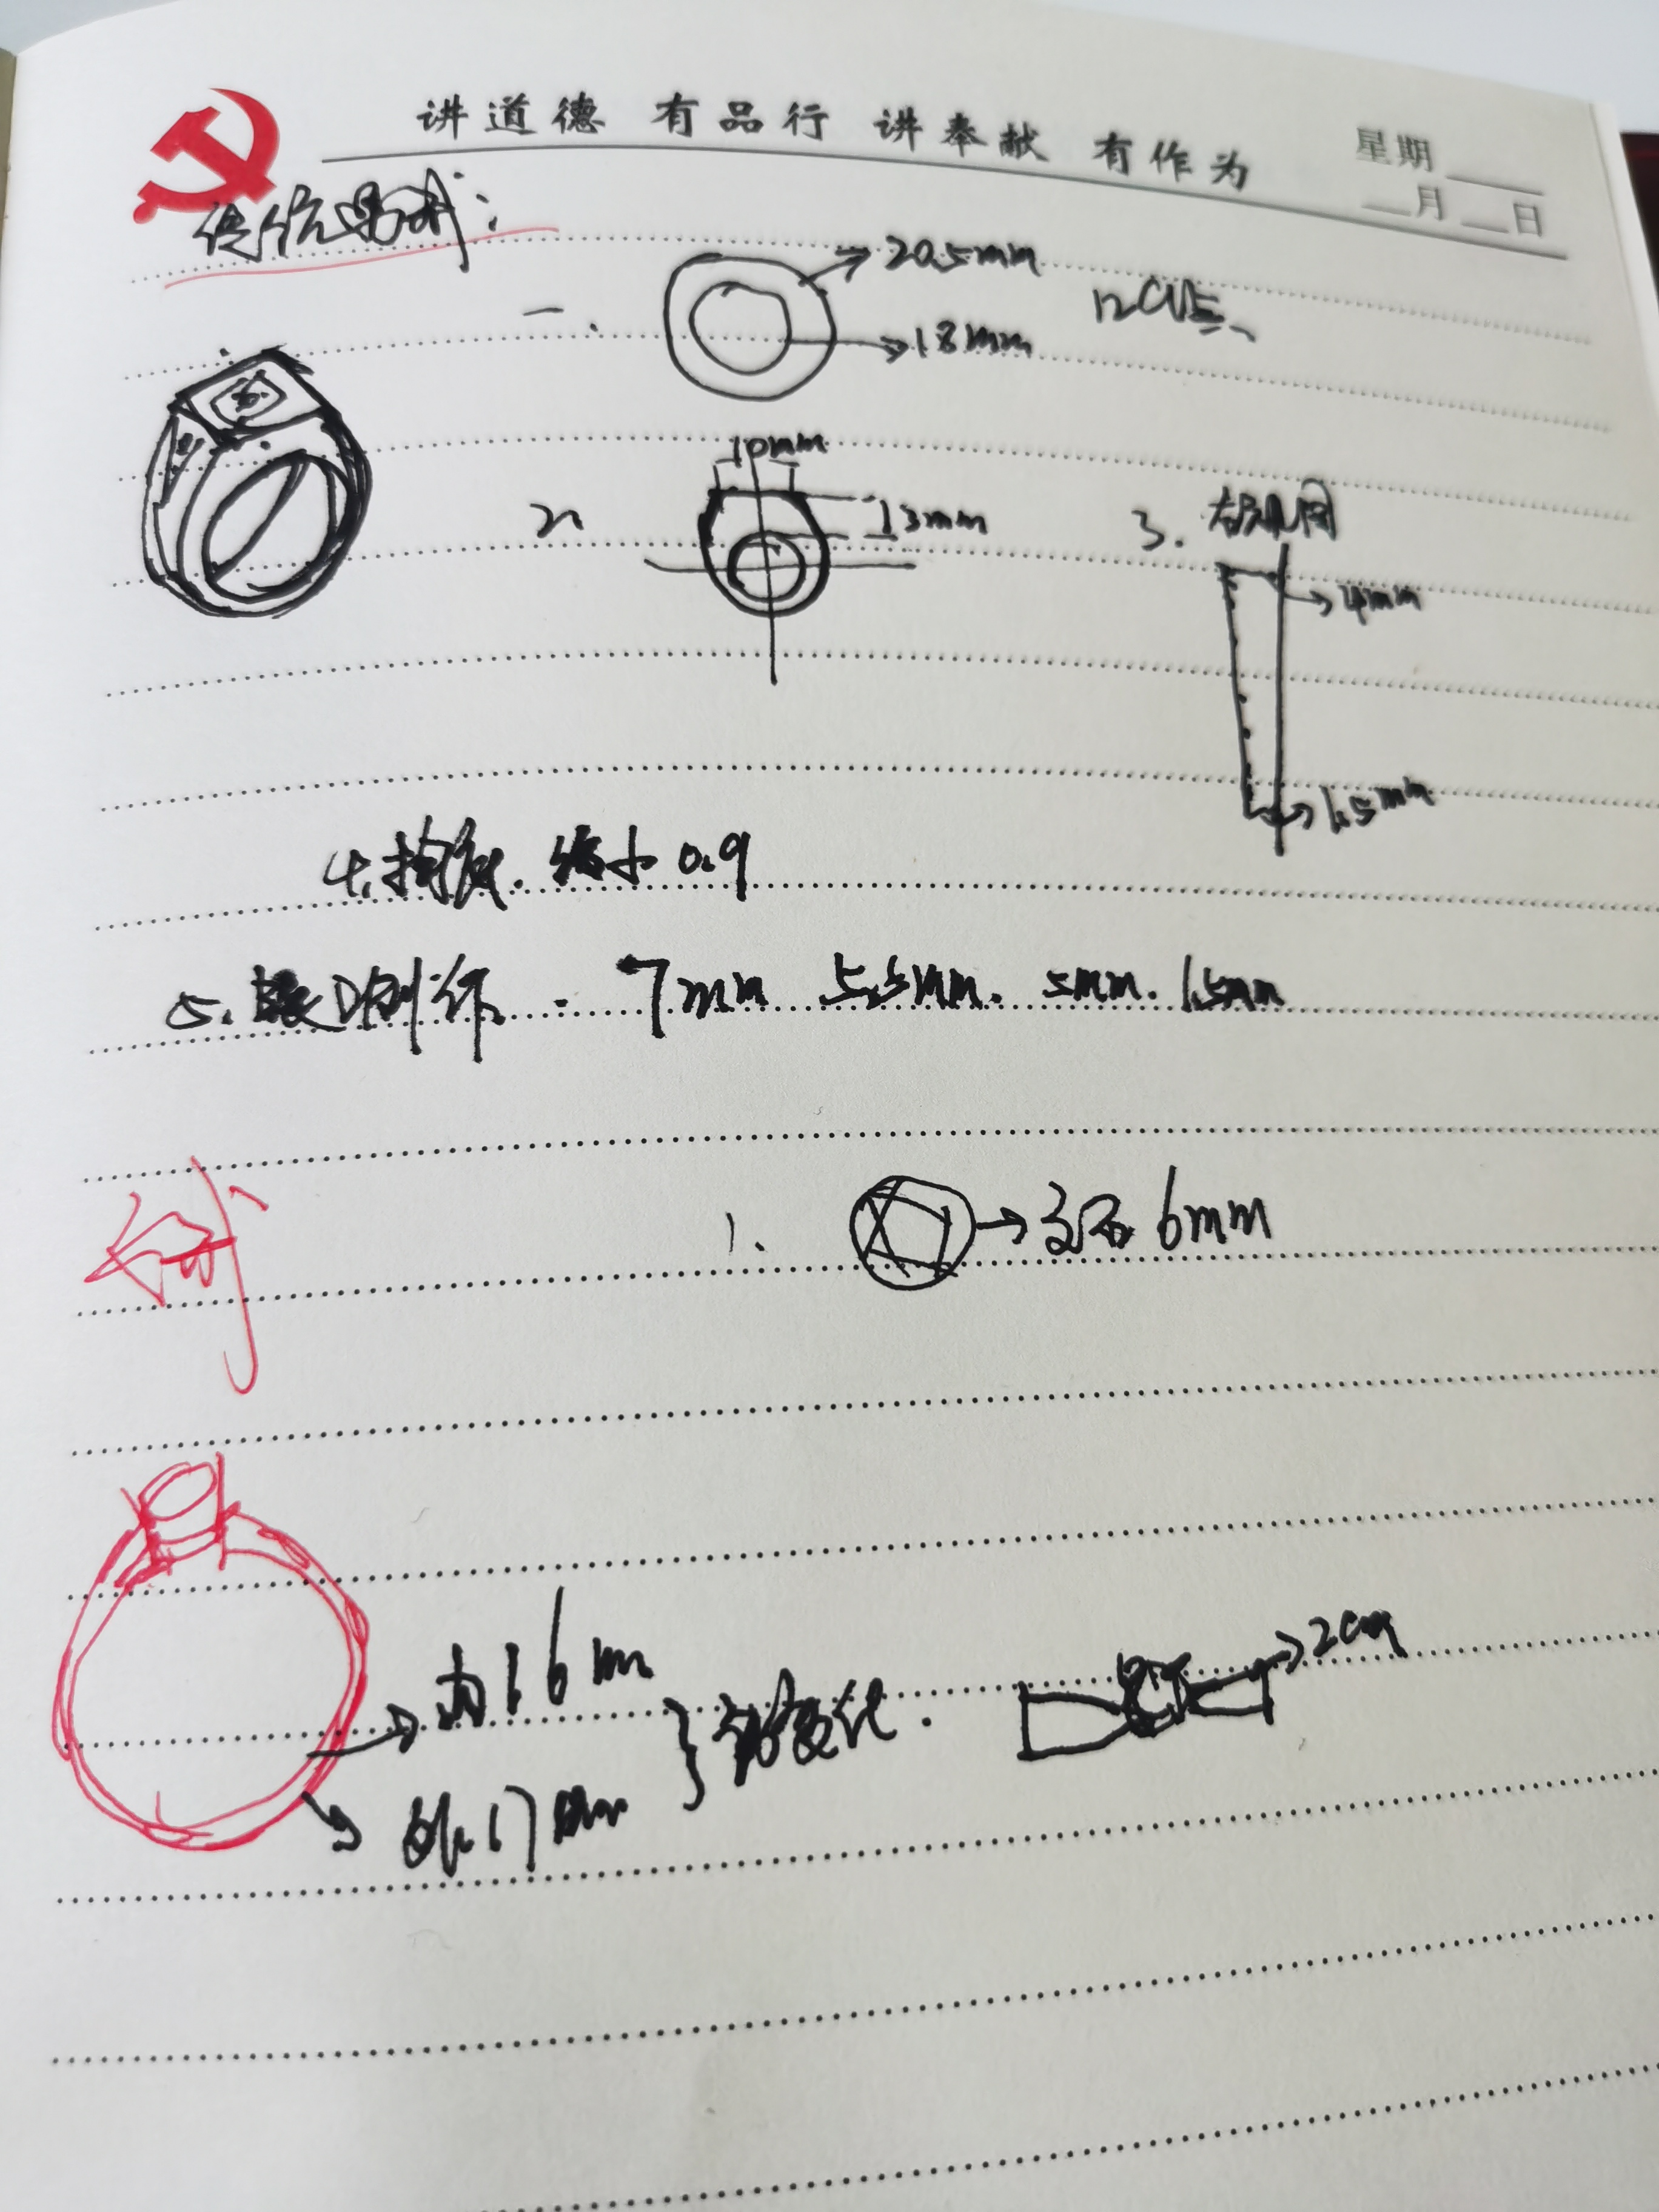 讲道德 有品行 讲奉献 有作为
星期
月 日
传统男戒:
一. 20.5mm
18mm
10mm
13mm
3. 右视图
4mm
1.5mm
4. 掏底. 缩小 0.9
5. 7mm 5.5mm. 5mm. 1.5mm
女戒
1. 宝石 6mm
内16mm
外17mm
2cm